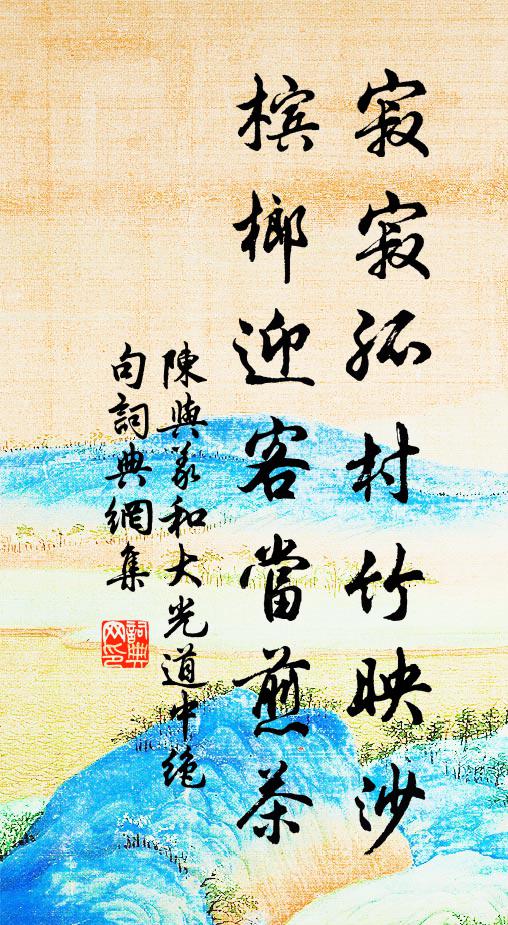 寂寂孤村竹映沙
檳榔迎客當煎茶
陳與義和大光道中絶
句詞典網集